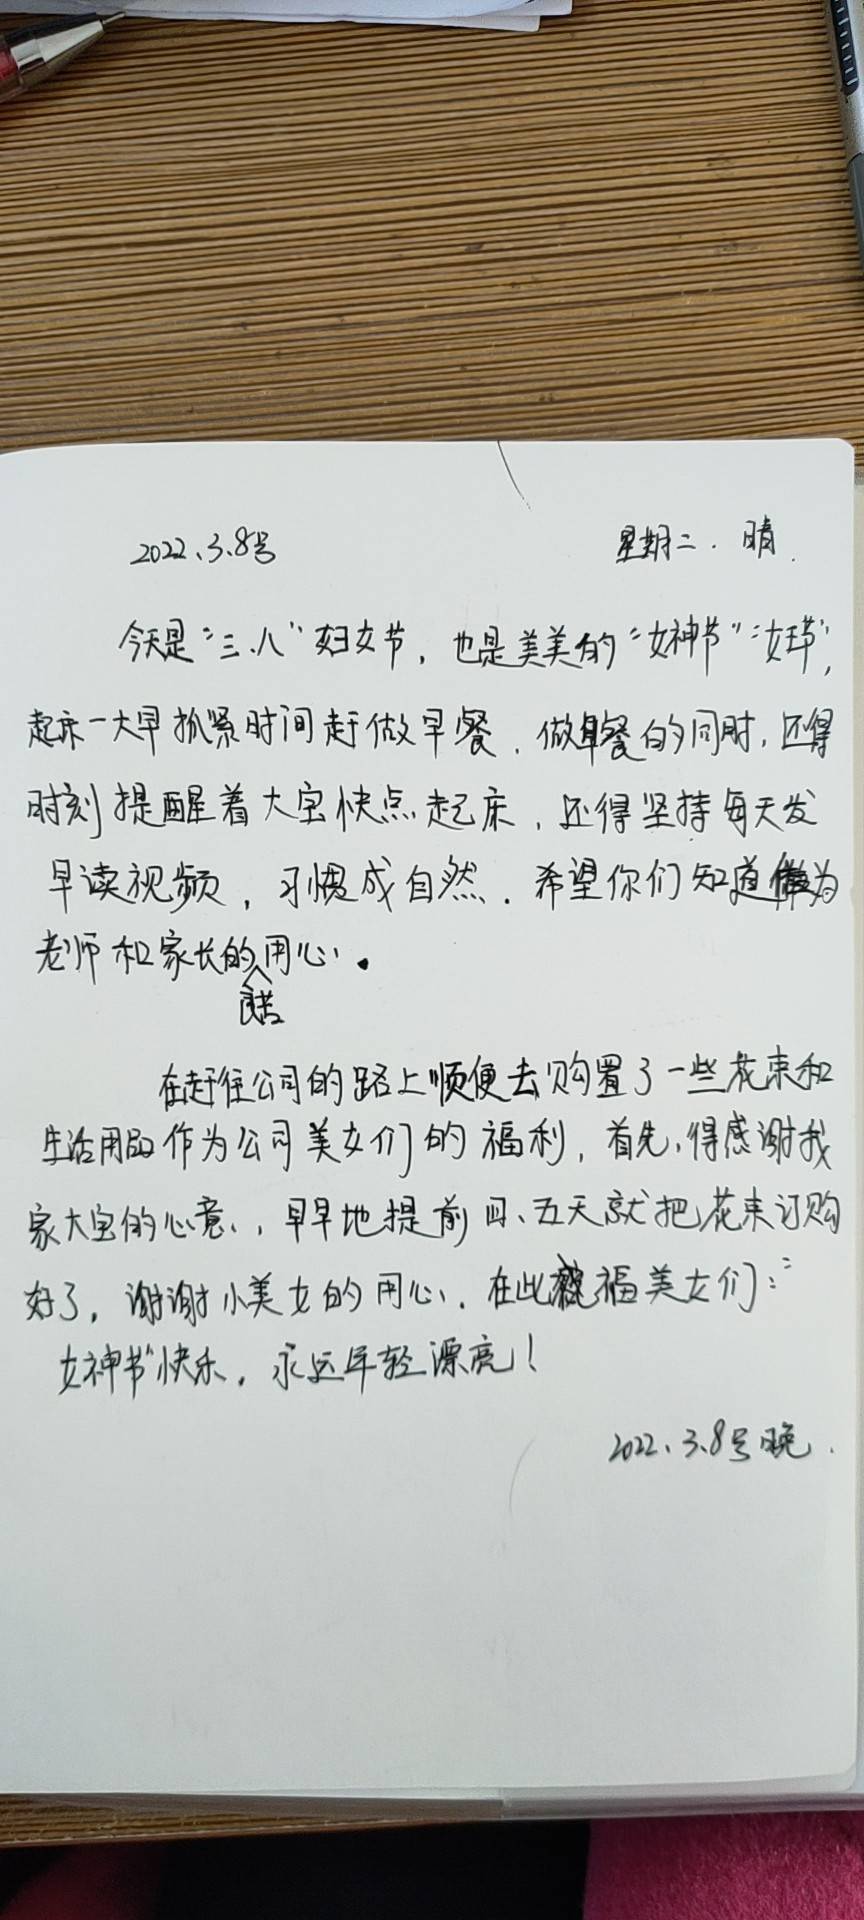 2022、3.8号 星期二. 晴.
今天是“三.八”妇女节，也是美美的“女神节”“女王节”，
起床一大早抓紧时间赶做早餐，做早餐的同时，还得
时刻提醒着大宝快点起床，还得坚持每天发
早读视频，习惯成自然。希望你们知道做为
老师和家长的良苦用心。
在赶往公司的路上顺便去购置了一些花束和
生活用品作为公司美女们的福利，首先，得感谢我
家大宝的心意，早早地提前四、五天就把花束订购
好了，谢谢小美女的用心，在此祝福美女们：“
女神节”快乐，永远年轻漂亮！
2022、3.8号晚.